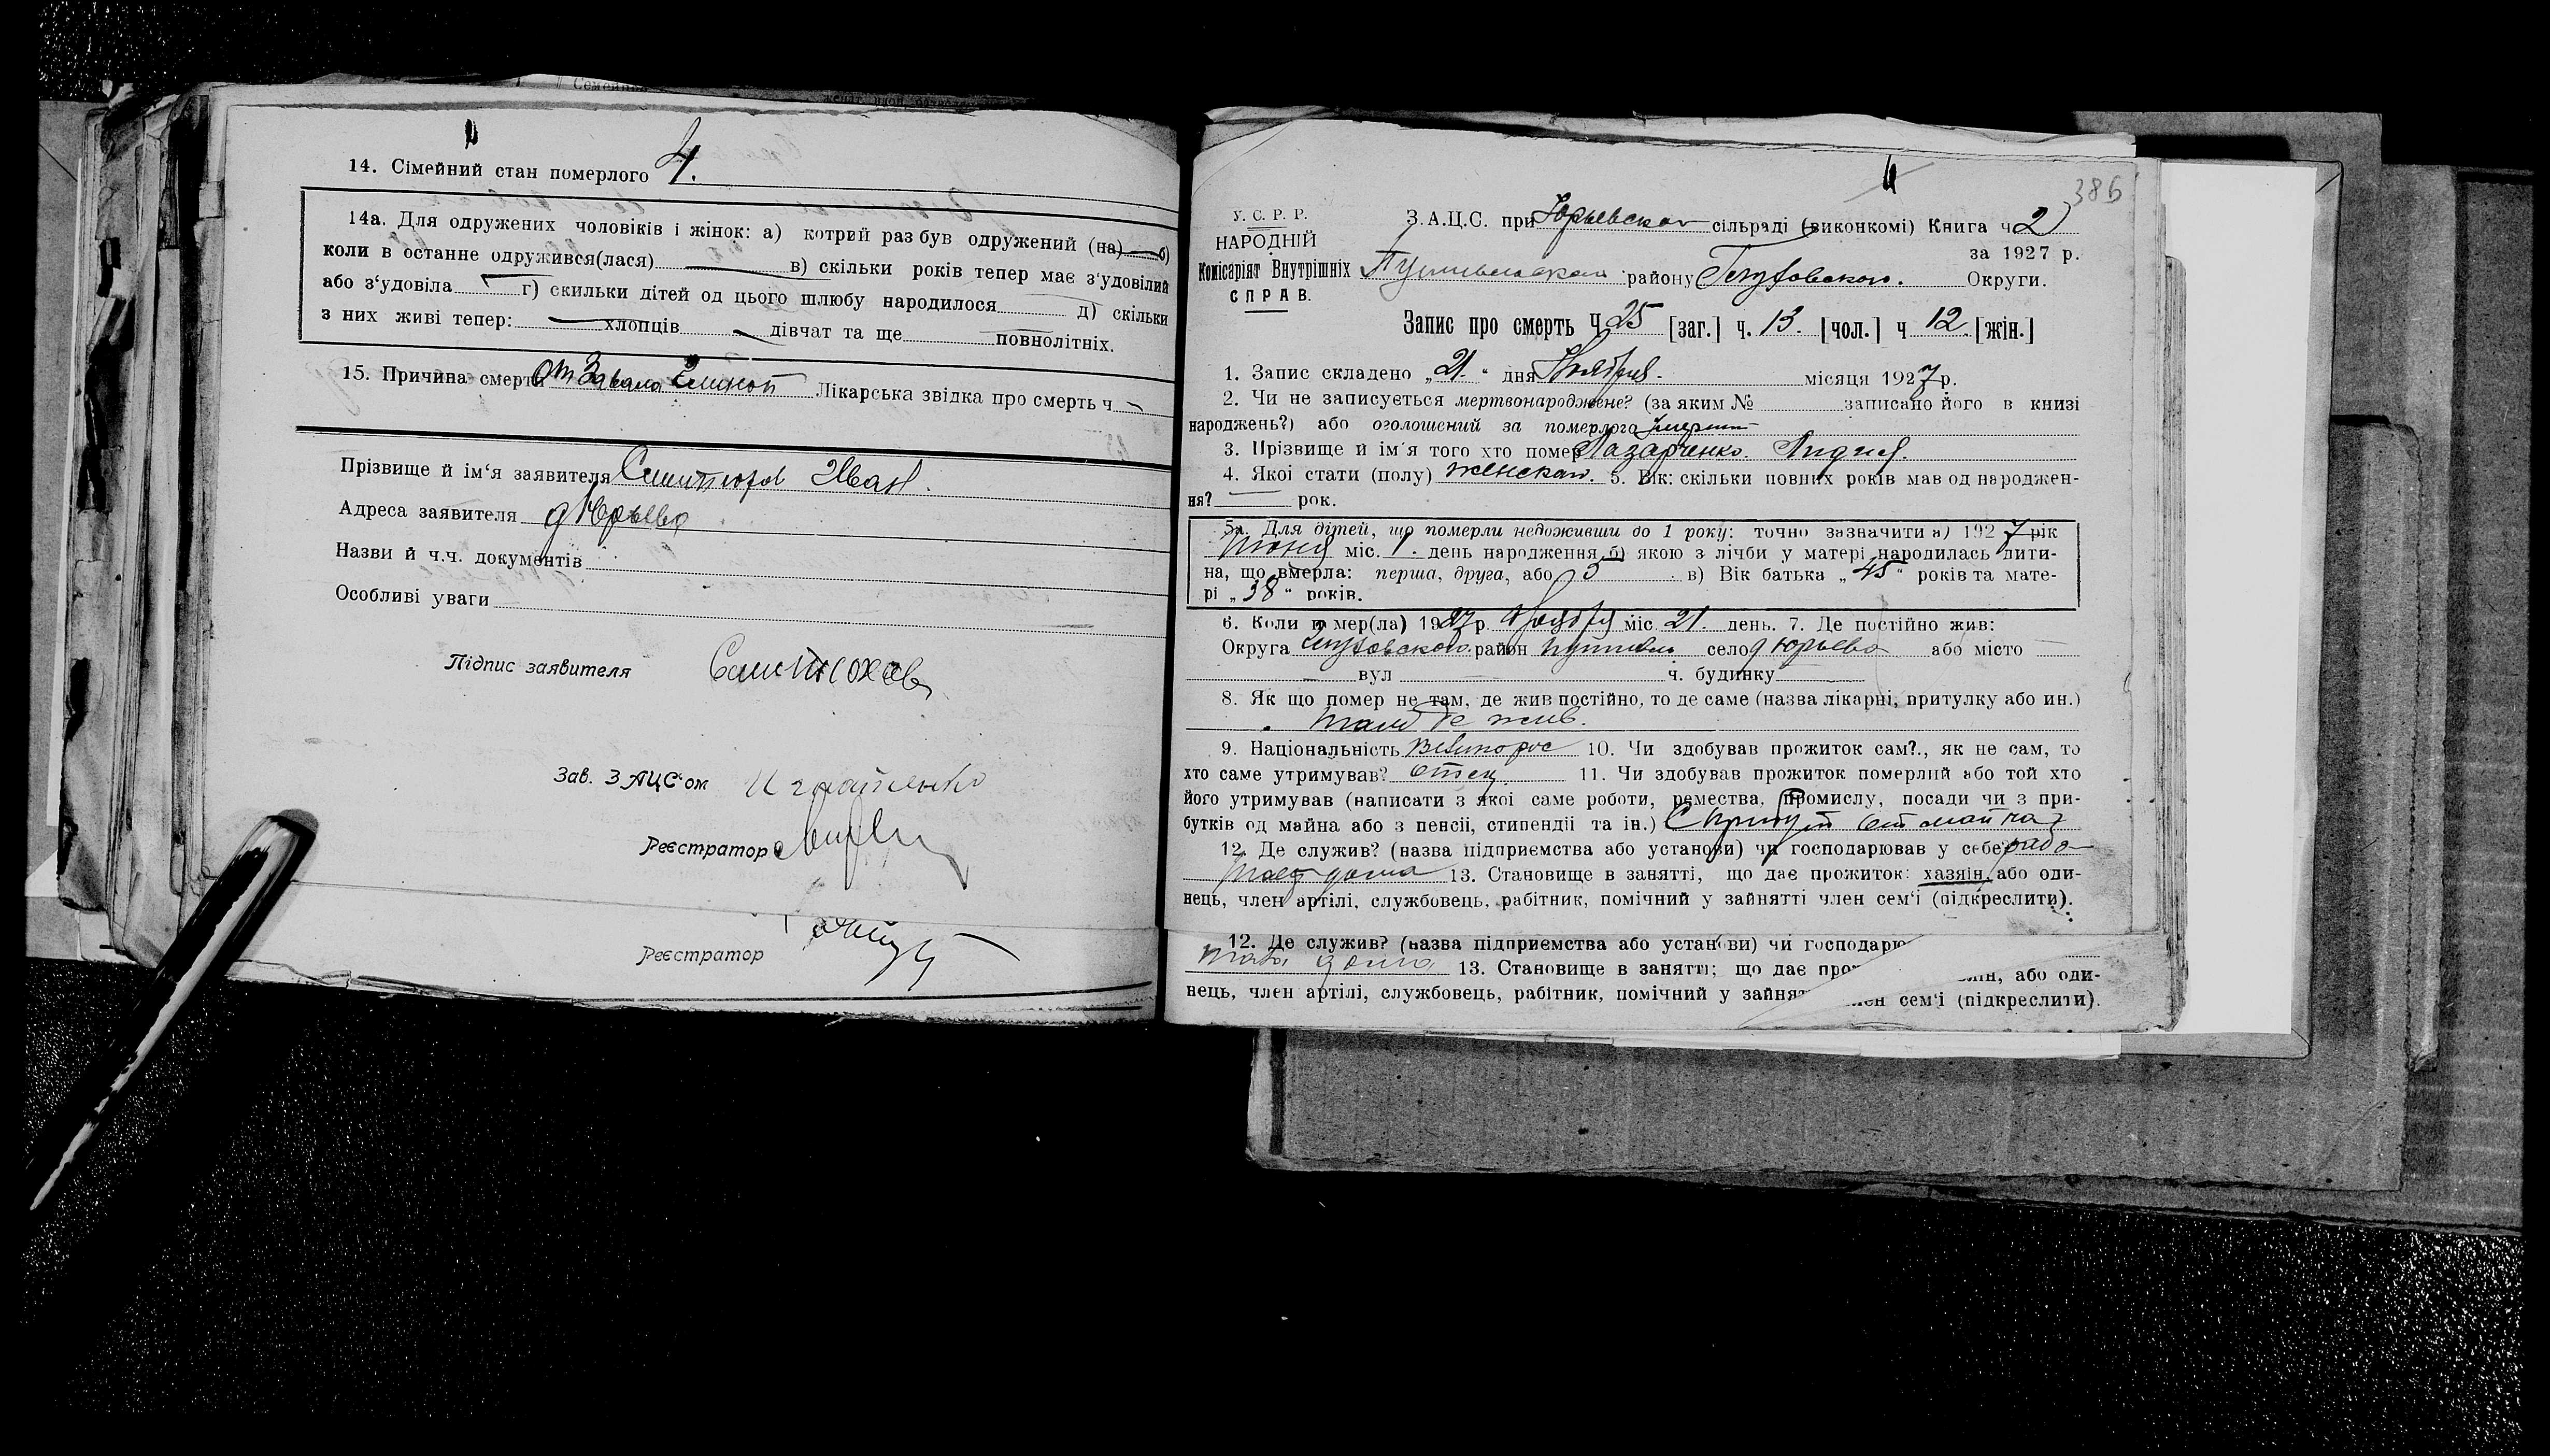 14. Сімейний стан померлого 4.
14а. Для одружених чоловіків і жінок: а) котрий раз був одружений (на) — б)
коли в останне одружився(лася) — в) скільки років тепер має з'удовілий
або з'удовіла г) скильки дітей од цього шлюбу народилося д) скільки
з них живі тепер: хлопців дівчат та ще повнолітніх.
15. Причина смерти От Лікарська звідка про смерть ч —
Прізвище й ім'я заявителя Иван.
Адреса заявителя д Юрьево
Назви й ч.ч. документів
Особливі уваги
Підпис заявителя
Зав. ЗАЦС'ом Игнатенко
Реєстратор
Реєстратор
386
У. С. Р. Р.
НАРОДНІЙ
Комісаріят Внутрішніх
СПРАВ.
З.А.Ц.С. при Юрьевской сільраді (виконкомі) Книга ч 2
за 1927 р.
Путивльскаго району Глуховского. Округи.
Запис про смерть Ч 25 [заг.] ч. 13. [чол.] ч 12. [жін.]
1. Запис складено „21." дня Ноября. місяця 1927 р.
2. Чи не записується мертвонароджене? (за яким № записано його в книзі
народжень?) або оголошений за померлого
3. Прізвище й ім'я того хто помер Лазаренко. Лидия.
4. Якої стати (полу) женская. 5. Вік: скільки повних років мав од народжен-
ня? — рок.
5а. Для дітей, що померли недоживши до 1 року: точно зазначити а) 1927 рік
міс. 1. день народження б) якою з лічби у матері народилась дити-
на, що вмерла: перша, друга, або 5 в) Вік батька „45" років та мате-
рі „38" років.
6. Коли помер(ла) 1927 р. Ноября міс. 21. день. 7. Де постійно жив:
Округа Глуховского район Путивль село д Юрьево або місто —
вул — ч. будинку
8. Як що помер не там, де жив постійно, то де саме (назва лікарні, притулку або ин.)
там де жив.
9. Національність Великорос 10. Чи здобував прожиток сам?., як не сам, то
хто саме утримував? отец 11. Чи здобував прожиток померлий або той хто
його утримував (написати з якої саме роботи, ремества, промислу, посади чи з при-
бутків од майна або з пенсії, стипендії та ін.) С прибут от майна
12. Де служив? (назва підприємства або установи) чи господарював у себе рабо
тает дома 13. Становище в занятті, що дає прожиток: хазяін, або оди-
нець, член артілі, службовець, рабітник, помічний у зайнятті член сем'ї (підкреслити).
12. Де служив? (назва підприємства або установи) чи господарю
дома 13. Становище в занятті; що дає про ін, або оди-
нець, член артілі, службовець, рабітник, помічний у зайнят лен сем'ї (підкреслити).